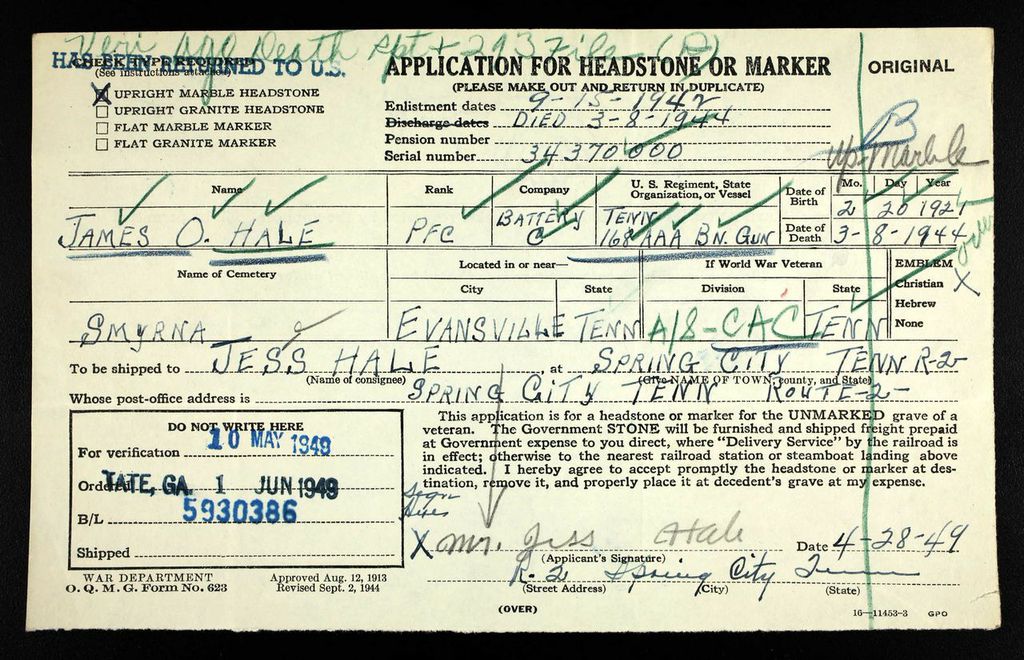 Veri Age Death Rpt + 293 File - (R)
HAS BEEN RETURNED TO U.S.
CHECK TYPE REQUIRED
(See instructions attached)
☒ UPRIGHT MARBLE HEADSTONE
☐ UPRIGHT GRANITE HEADSTONE
☐ FLAT MARBLE MARKER
☐ FLAT GRANITE MARKER
APPLICATION FOR HEADSTONE OR MARKER
(PLEASE MAKE OUT AND RETURN IN DUPLICATE)
ORIGINAL
Enlistment dates 9-15-1942
Discharge dates DIED 3-8-1944
Pension number
Serial number 34370000
B
Up-Marble
Name Rank Company U. S. Regiment, State Organization, or Vessel
JAMES O. HALE PFC BATTERY C TENN 168 AAA BN. GUN
Mo. Day Year
Date of Birth 2 20 1921
Date of Death 3-8-1944
Name of Cemetery
SMYRNA
Located in or near—
City State
EVANSVILLE TENN
If World War Veteran
Division State
A/S-CAC TENN
EMBLEM
Christian X
Hebrew
None
To be shipped to JESS HALE, at SPRING CITY TENN R-2
(Name of consignee) (Give NAME OF TOWN, county, and State)
Whose post-office address is SPRING CITY TENN ROUTE-2-
DO NOT WRITE HERE
For verification 10 MAY 1949
Ordered TATE, GA. 1 JUN 1949
B/L 5930386
Shipped
This application is for a headstone or marker for the UNMARKED grave of a
veteran. The Government STONE will be furnished and shipped freight prepaid
at Government expense to you direct, where "Delivery Service" by the railroad is
in effect; otherwise to the nearest railroad station or steamboat landing above
indicated. I hereby agree to accept promptly the headstone or marker at des-
tination, remove it, and properly place it at decedent's grave at my expense.
Sign Here
X Mr. Jess Hale Date 4-28-49
(Applicant's Signature)
R. 2 Spring City Tenn
(Street Address) (City) (State)
WAR DEPARTMENT
O. Q. M. G. Form No. 623
Approved Aug. 12, 1913
Revised Sept. 2, 1944
(OVER)
16—11453-3 GPO